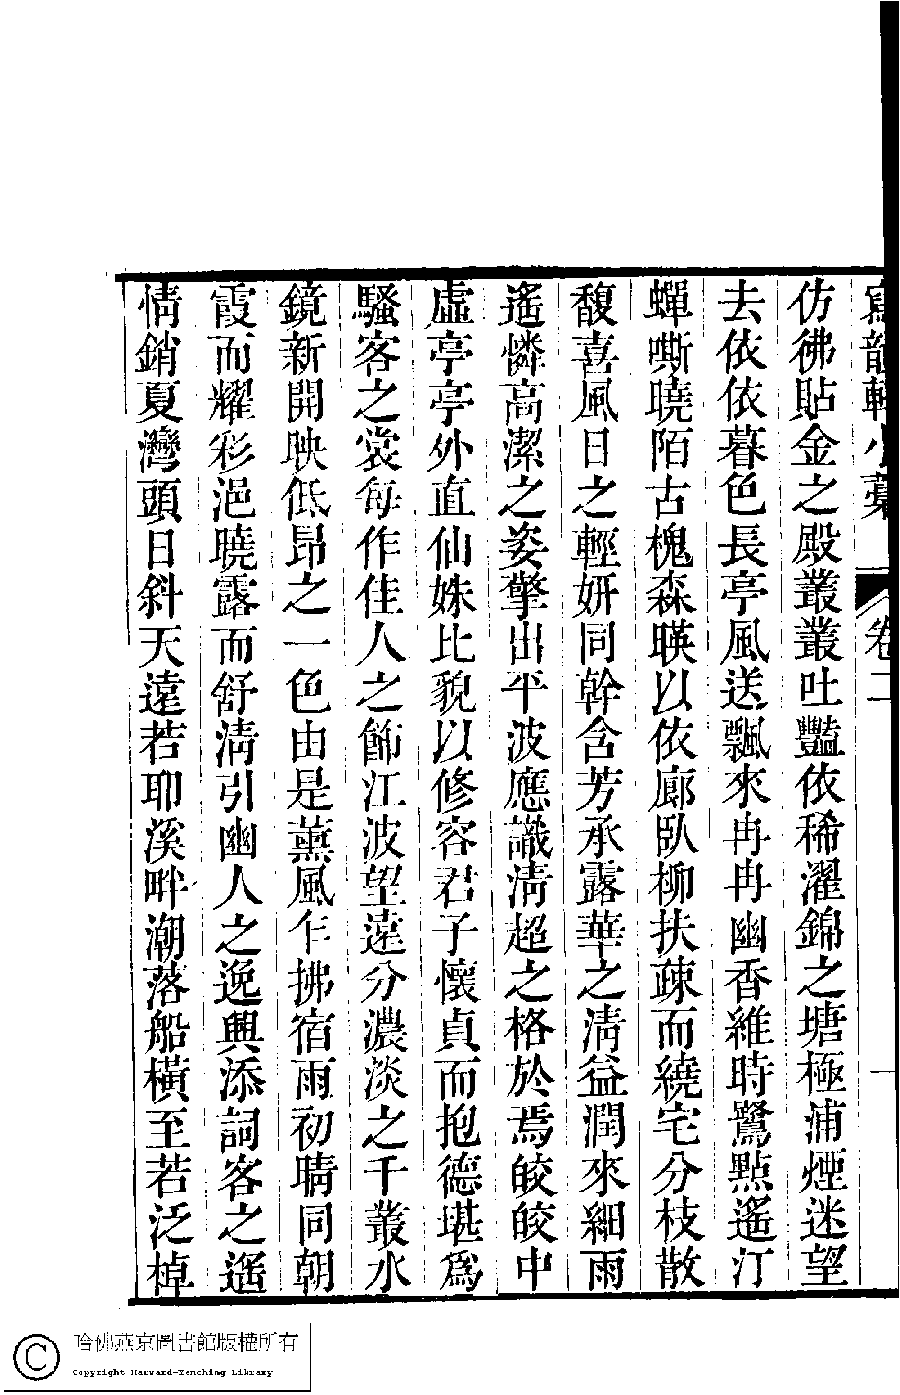 寫韻軒小藁 卷二 一
仿彿貼金之殿叢叢吐豔依稀濯錦之塘極浦煙迷望
去依依暮色長亭風送飄來冉冉幽香維時鷺點遙汀
蟬嘶曉陌古槐森暎以依廊臥柳扶疎而繞宅分枝散
馥喜風日之輕妍同幹含芳承露華之清益潤來細雨
遙憐高潔之姿擎出平波應識清超之格於焉皎皎中
虛亭亭外直仙姝比貌以修容君子懷貞而抱德堪為
騷客之裳每作佳人之飾江波望遠分濃淡之千叢水
鏡新開映低昂之一色由是薰風乍拂宿雨初晴同朝
霞而耀彩浥曉露而舒清引幽人之逸興添詞客之遙
情銷夏灣頭日斜天遠若耶溪畔潮落船橫至若泛棹
哈佛燕京圖書館版權所有
Copyright Harvard-Yenching Library